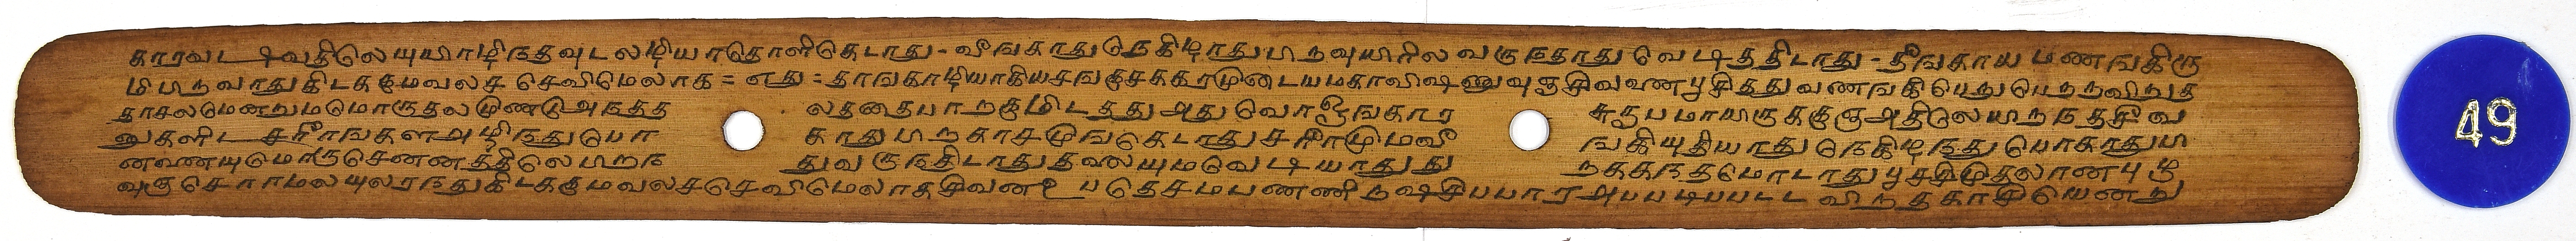 காரவடிவதிலெயுயிரொழிநதவுடலழியாதொளிகெடாது - வீஙகாதுநெகிழாதுபிறவுயிரில வருநதாது வெடிததிடாது - தீஙகாய மணஙகிரு
மிபிறவாதுகிடககுமவலச செவிமெலாக = எது = தாஙகாழியாகியசஙகுசககரமுடைய மகாவிஷணுவுஞசிவனபூசிதது வணஙகிபெறுபெறறவிநத
தாசலமெனறுமமொருதலமுணடுஅநதத லததைபாறகுமிடதது அது வொஙகார சுதபமாயருககுஞ அதிலெயிறநதசீவ
னுகளிடசரீரஙகளஅழிநதுபொ காதுபிறகாசமுஙகெடாதுசரீரமுமவீ ஙகியுதியாது நெகிழநதுபொகாதுபி
னனையுமொருசெனனததிலெபிறந துவருநதிடாதுதலையுமவெடியாதுது றககநதமொடாதுபூசசிமுதலானபுழு
வுஞசெராமலயுலரநதுகிடககுமவலசசெவிமெலாகசிவன உபதெசமபணணி ரஷசிபபார அபபடிபபடட விநதகாசியெனறு
49